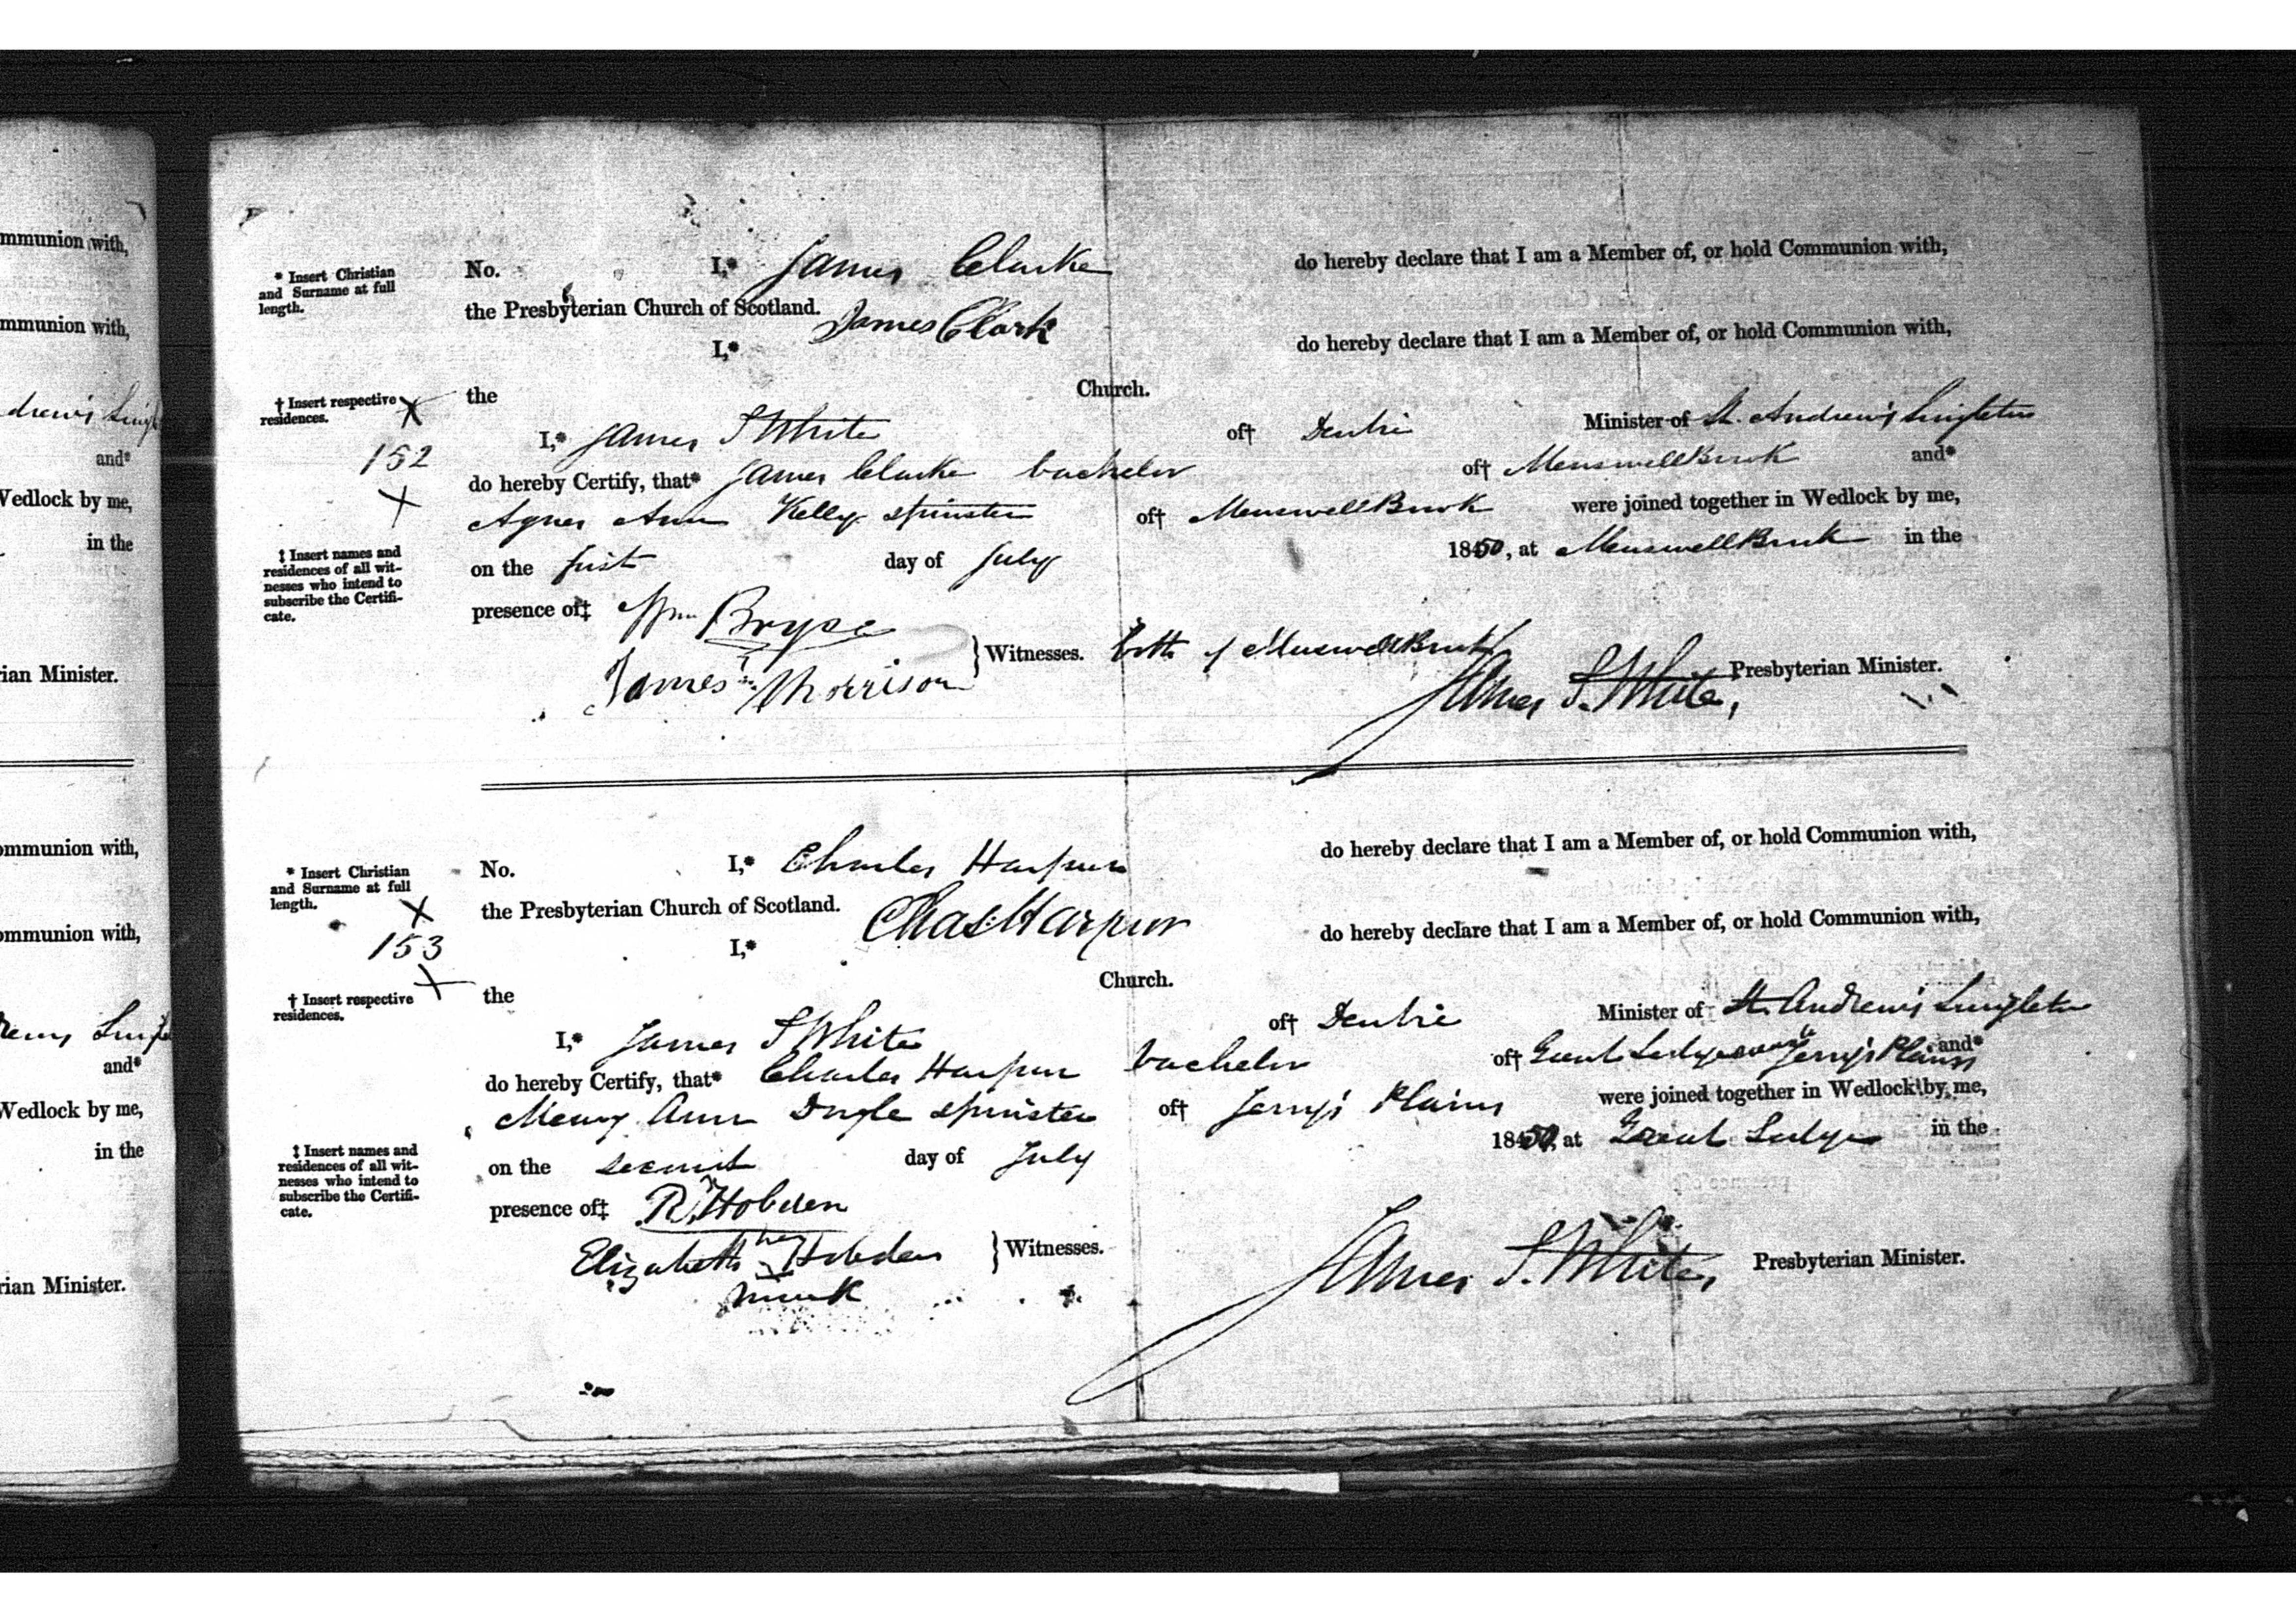 mmunion with,
mmunion with,
drew's Singl
and*
Wedlock by me,
in the
rian Minister.
ommunion with,
ommunion with,
and*
Wedlock by me,
in the
rian Minister.
* Insert Christian and Surname at full length.
No. I,* James Clarke do hereby declare that I am a Member of, or hold Communion with,
the Presbyterian Church of Scotland.
James Clark
I,* do hereby declare that I am a Member of, or hold Communion with,
† Insert respective residences.
the Church.
X
152
X
I,* James S White of† Dentrie Minister of St. Andrew's Singleton
do hereby Certify, that* James Clarke bachelor of† MuswellBrook and*
Agnes Ann Kelly spinster of† MuswellBrook were joined together in Wedlock by me,
‡ Insert names and residences of all witnesses who intend to subscribe the Certificate.
on the first day of July 1850, at MuswellBrook in the
presence of‡ Wm Bryce
James Morrison } Witnesses. both of MuswellBrook
James S. White, Presbyterian Minister.
* Insert Christian and Surname at full length.
No. I,* Charles Harpur do hereby declare that I am a Member of, or hold Communion with,
the Presbyterian Church of Scotland.
Chas. Harpur
X
153
X
I,* do hereby declare that I am a Member of, or hold Communion with,
† Insert respective residences.
the Church.
I,* James S White of† Dentrie Minister of St. Andrew's Singleton
do hereby Certify, that* Charles Harpur bachelor of† Jerry's Plains and*
Mary Ann Doyle spinster of† Jerry's Plains were joined together in Wedlock by me,
‡ Insert names and residences of all witnesses who intend to subscribe the Certificate.
on the second day of July 1850, at in the
presence of‡ R. Hobden
Elizabeth her Hobden } Witnesses.
mark
James S. White, Presbyterian Minister.